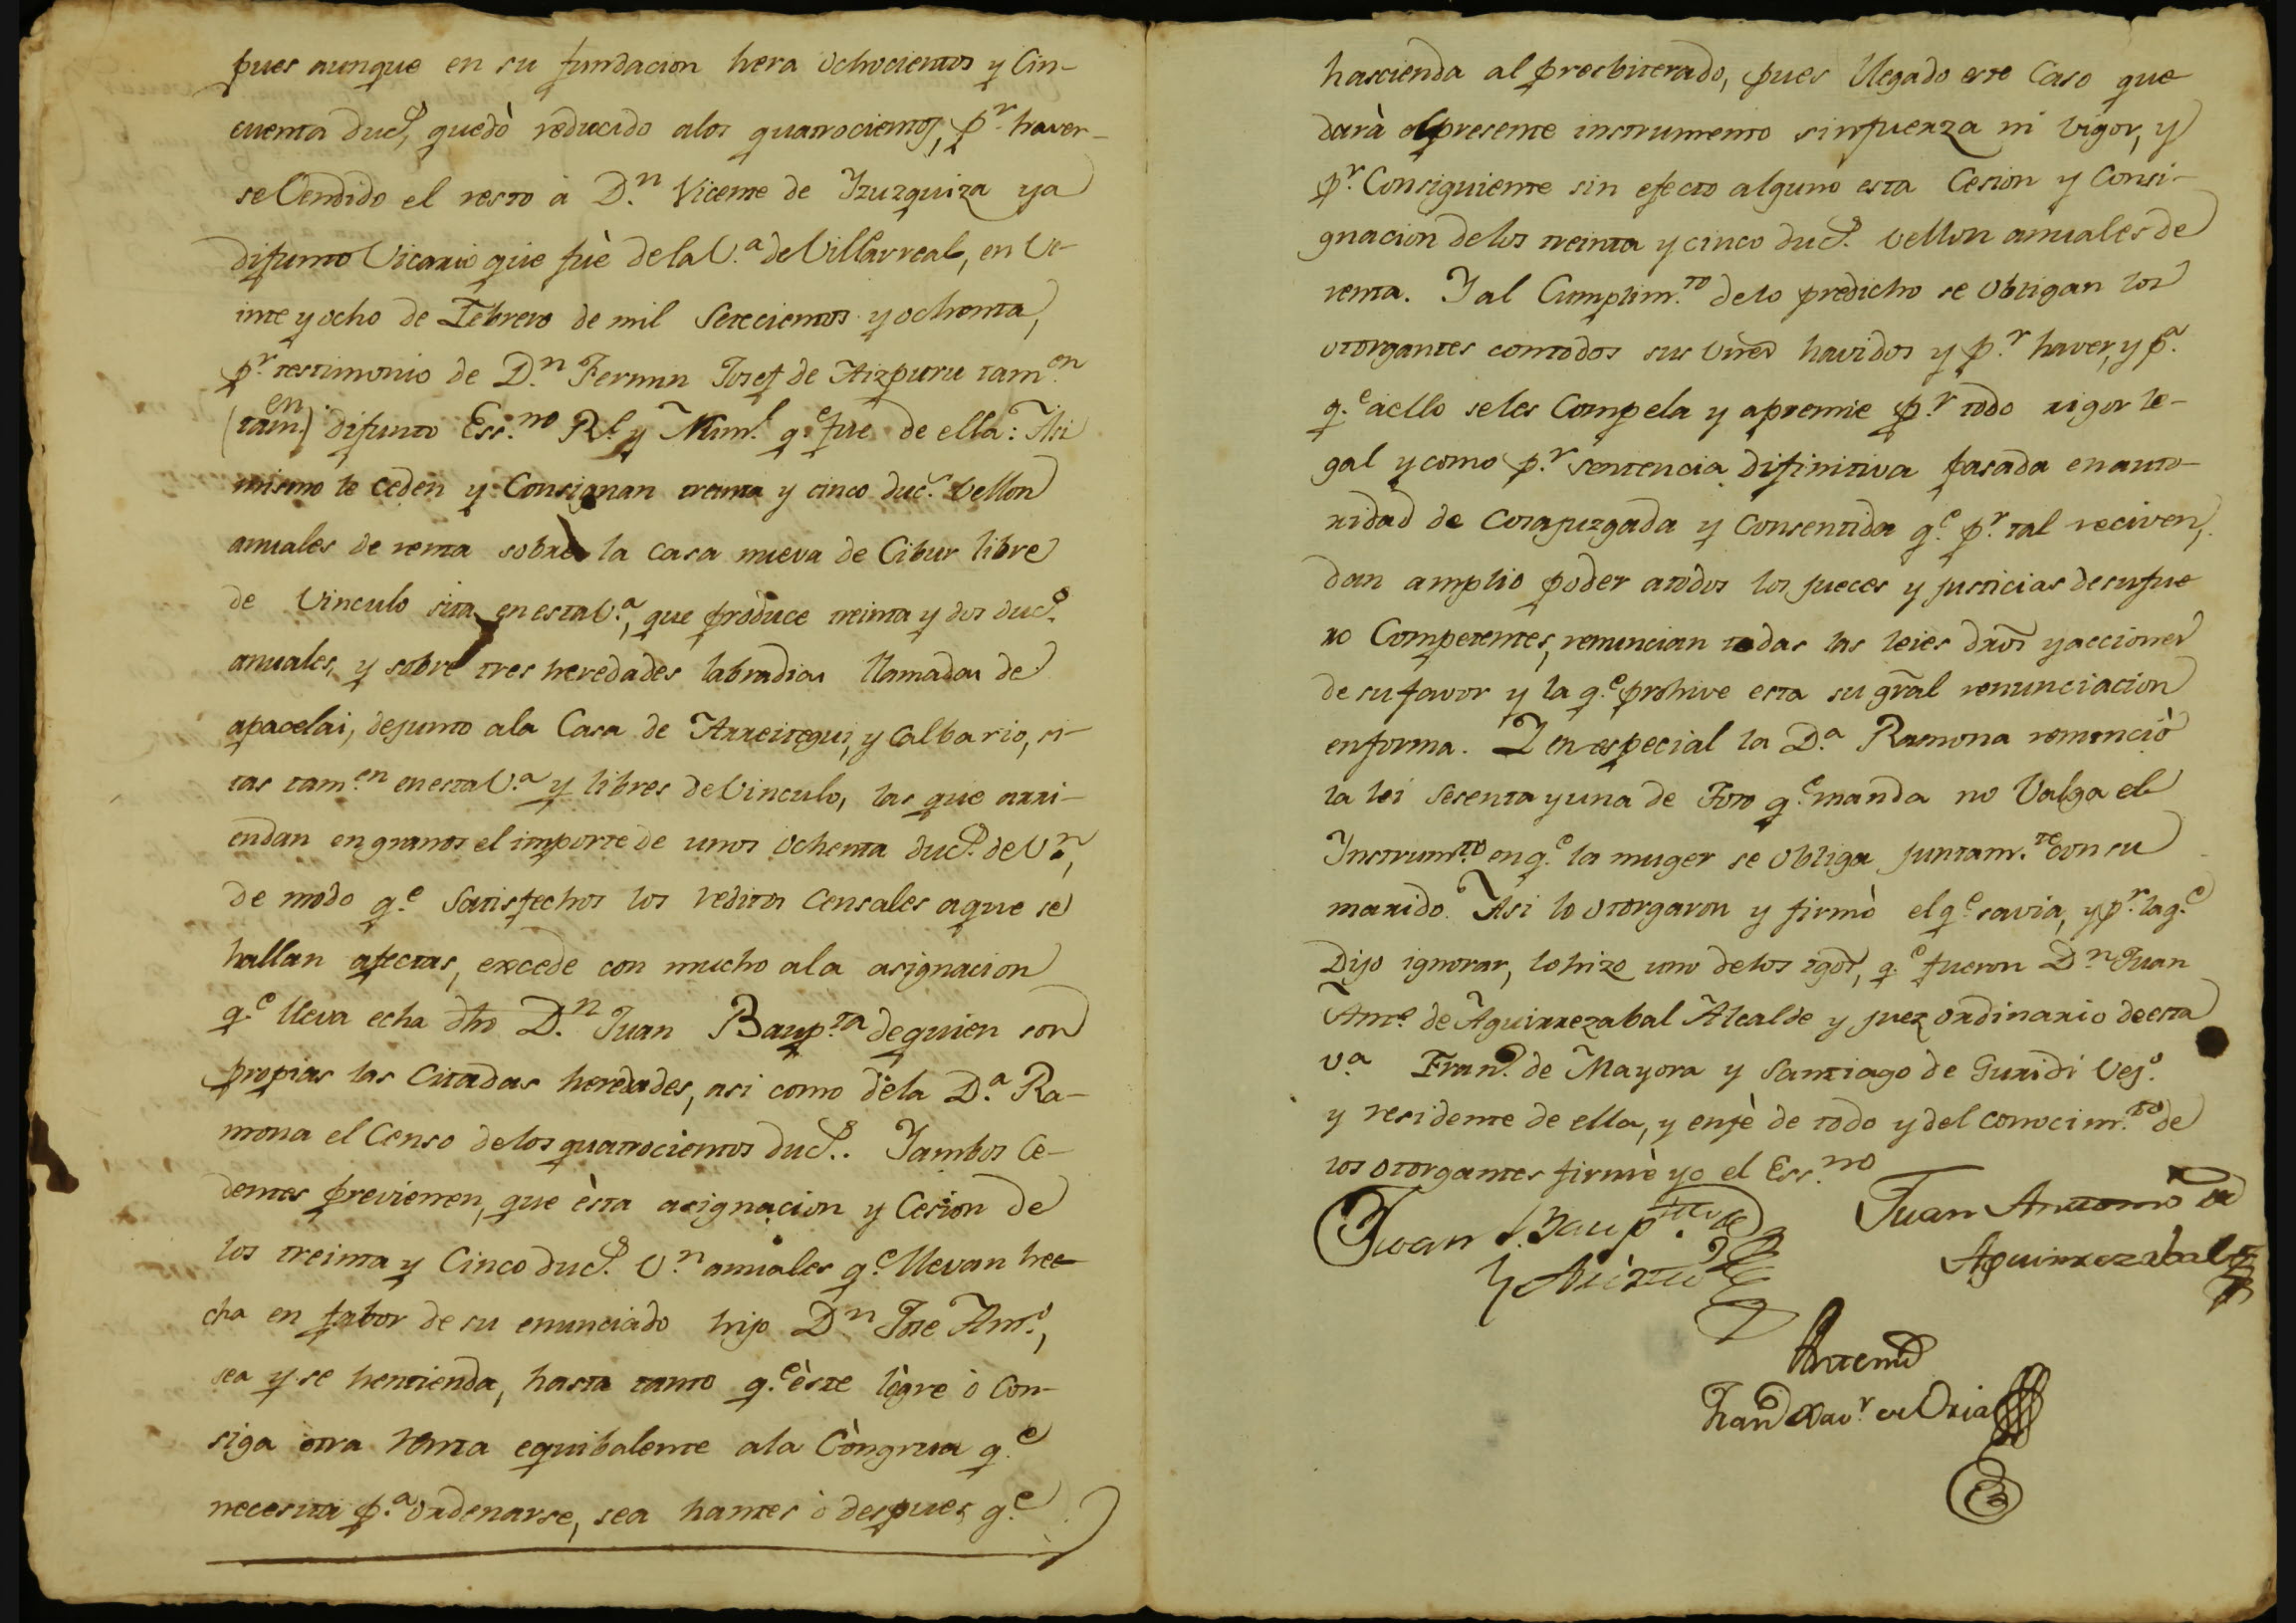 pues aunque en su fundacion hera ochocientos y Cin-
cuenta duc.s, quedò reducido alos quatrocientos, p.r haver-
se Cendido el resto à D.n Vicente de Yzuzquiza ya
difunto Vicario que fuè dela V.a de Villarreal, en Ve-
inte y ocho de Febrero de mil Setecientos y ochenta,
p.r testimonio de D.n Fermin Josef de Aizpuru tam.en
(tam.en) difunto Ess.no R.l y Num.l q.e fue de ella: Asi
mismo le ceden y Consignan treinta y cinco duc.s Vellon
anuales de renta sobre la casa nueva de Cibur libre
de Vinculo sita en esta V.a, que produce treinta y dos duc.s
anuales, y sobre tres heredades labradias llamadas de
apacelai, dejunto ala Casa de Arreitegui, y Calbario, si-
tas tam.en en esta V.a y libres de Vinculo, las que arri-
endan en granos el importe de unos ochenta duc.s de V.n,
de modo q.e Satisfechos los reditos Censales a que se
hallan afectas, excede con mucho ala asignacion
q.e lleva echa dho D.n Juan Baup.ta de quien son
propias las Citadas heredades, asi como dela D.a Ra-
mona el Censo delos quatrocientos duc.s. Y ambos Ce-
dentes previenen, que èsta asignacion y Cesion de
los treinta y Cinco duc.s V.n anuales q.e llevan hee-
cha en fabor de su enunciado hijo D.n Jose Ant.o,
sea y se hentienda, hasta tanto q.e èste lògre ò Con-
siga otra renta equibalente ala Còngrua q.e
necesita p.a ordenarse, sea hantes ò despues q.e
hascienda al presbiterado, pues llegado este Caso que
darà el presente instrumento sin fuerza ni vigor, y
p.r Consiguiente sin efecto alguno esta Cesion y Consi-
gnacion delos treinta y cinco duc.s Vellon anuales de
renta. Y al Cumplim.to delo predicho se obligan los
otorgantes con todos sus vnes havidos y p.r haver, y p.a
q.e aello seles Compela y apremie p.r todo rigor le-
gal y como p.r sentencia difinitiva pasada en auto-
ridad de Cosa juzgada y Consentida q.e p.r tal reciven,
dan amplio poder atodos los jueces y justicias de su fue
ro Competentes, renuncian todas las leies dros y acciones
de su favor y la q.e prohive esta su gral renunciacion
en forma. Y en especial la D.a Ramona renunciò
la lei sesenta y una de Toro q.e manda no Valga el
Instrum.to en q.e la muger se obliga juntam.te con su
marido. Asi lo otorgaron y firmò el q.e savia, y p.r la q.e
Dijo ignorar, lo hizo uno delos tgos, q.e fueron D.n Juan
Ant.o de Aguirrezabal Alcalde y juez ordinario de esta
V.a Fran.co de Mayora y Santiago de Guridi Vej.s
y residente de ella, y en fè de todo y del conocim.to de
los otorgantes firmè yo el Ess.no
Juan Baup.ta de
Juan Antonio de
Aguirrezabal
Antemi
Fran.co Xav.r de Oria